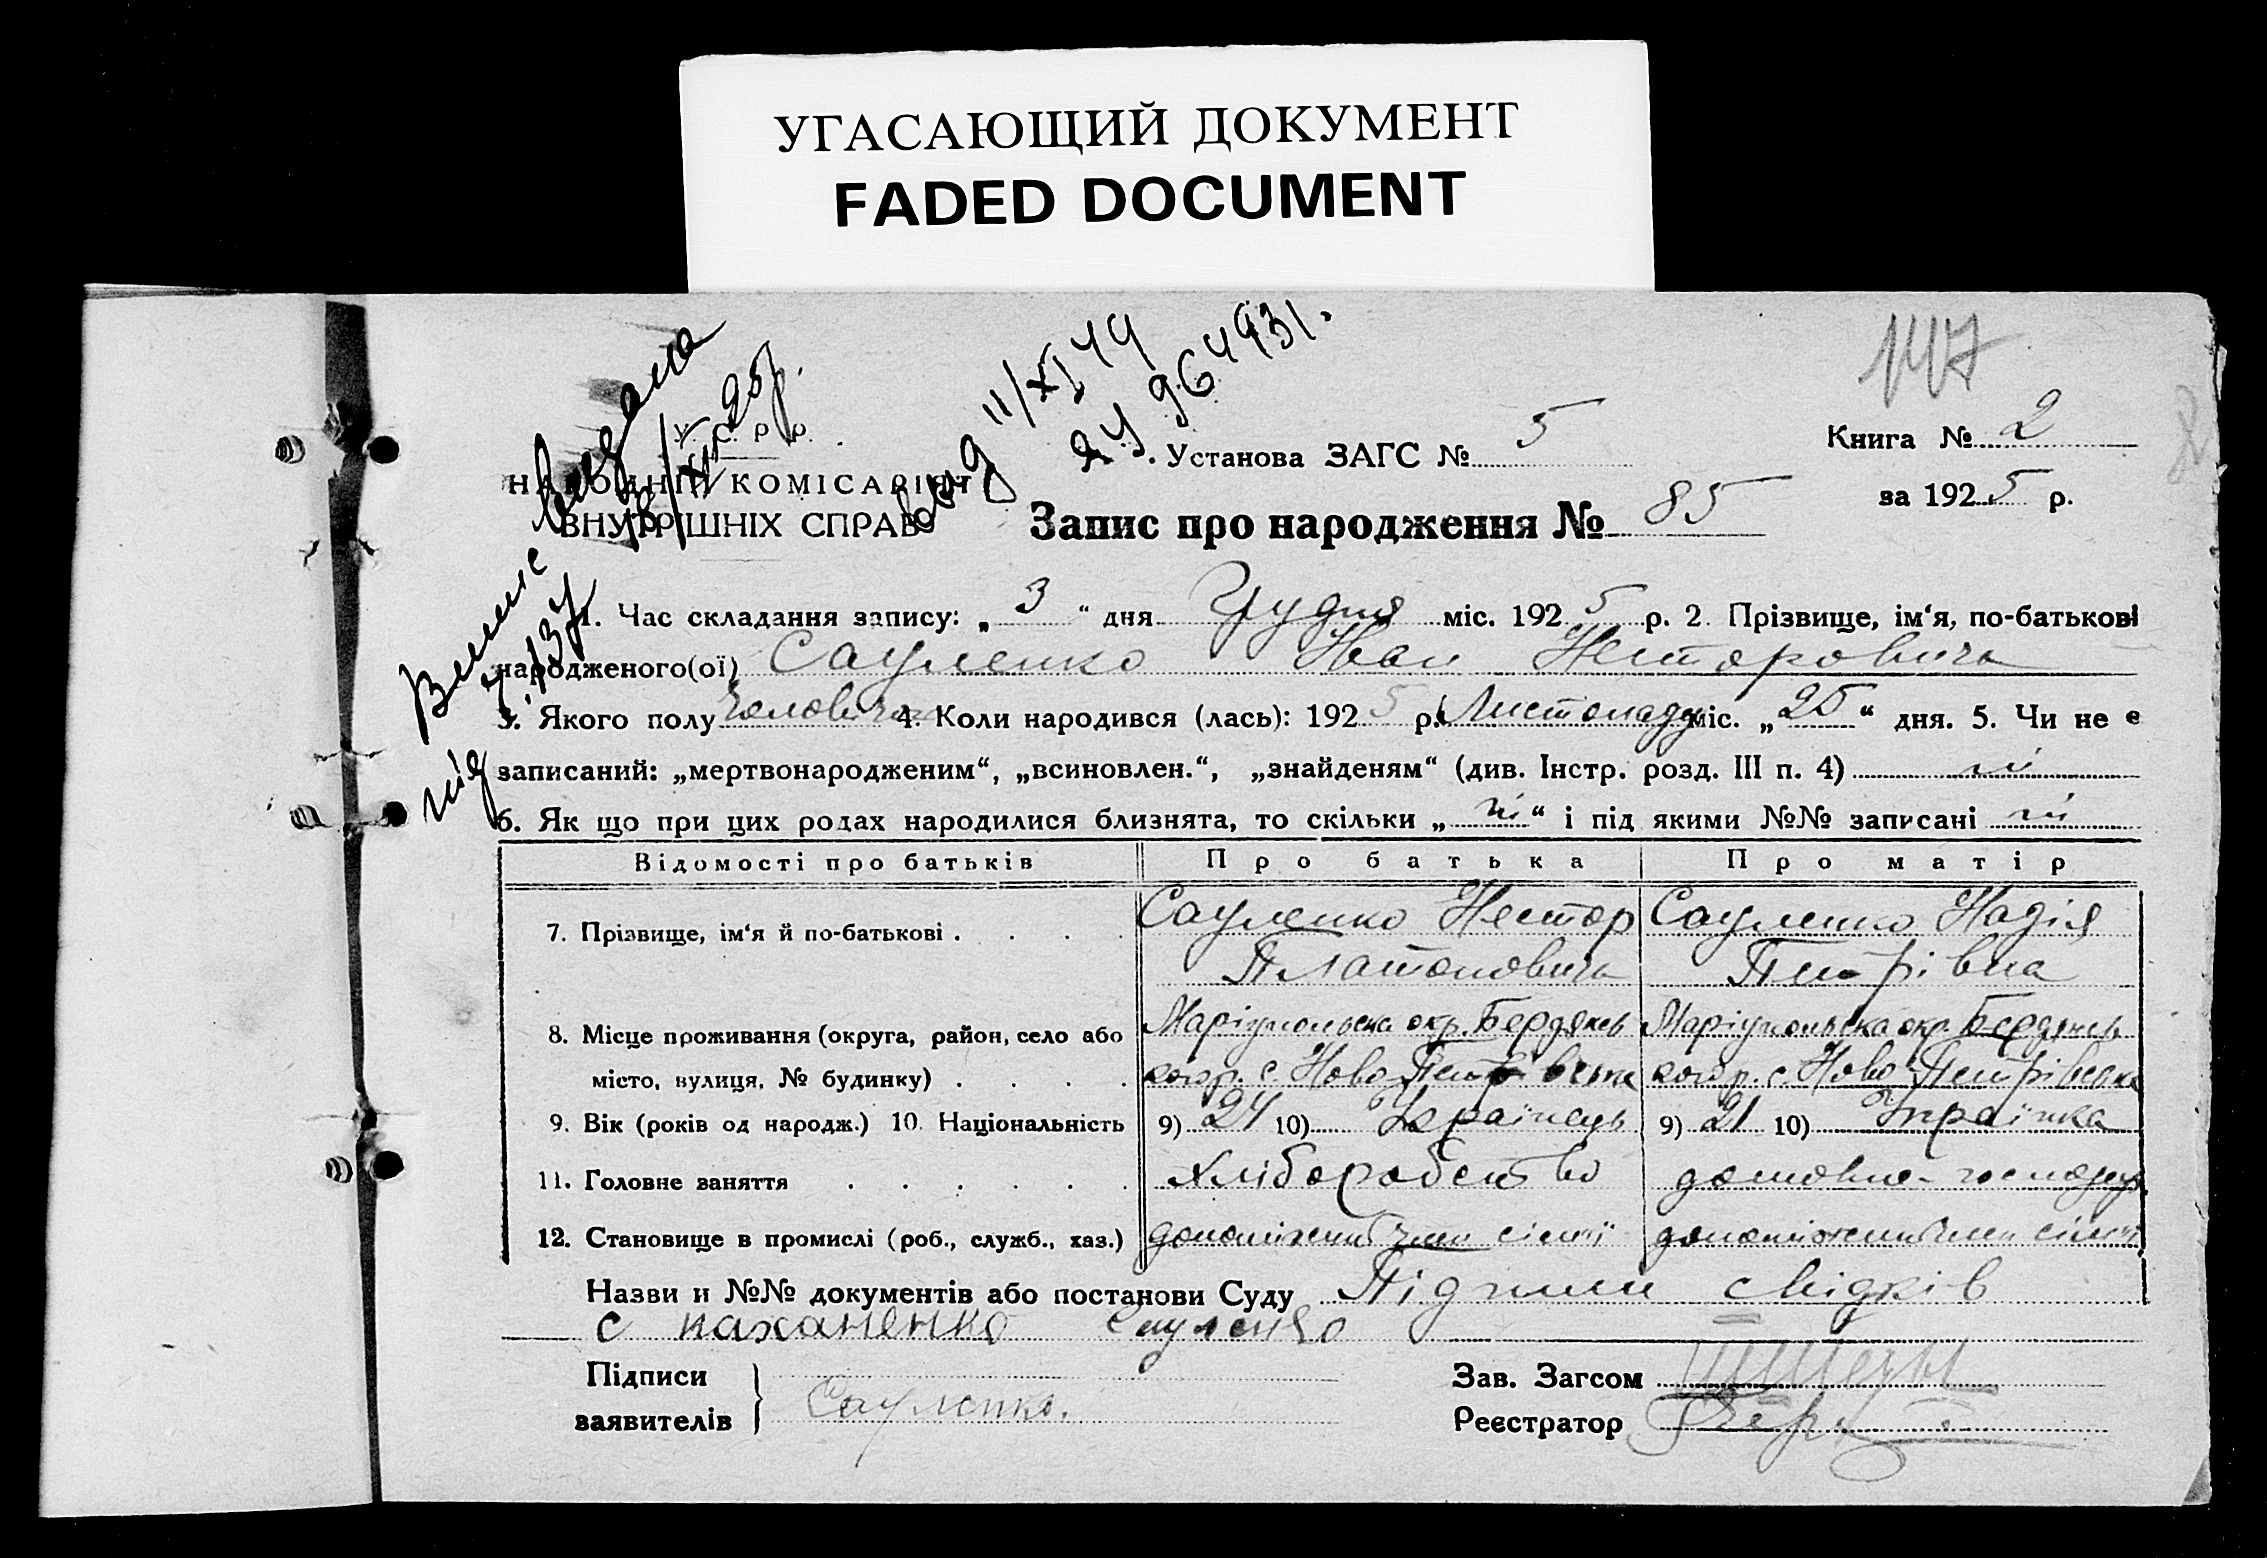 УГАСАЮЩИЙ ДОКУМЕНТ
FADED DOCUMENT
147
У. С. Р. Р.
НАРОДНІЙ КОМІСАРІЯТ
ВНУТРІШНІХ СПРАВ
Видана
3/XII 25р.
вид 11/XI 44
ЯУ 964931.
Установа ЗАГС № 5
Книга № 2
за 1925 р.
Запис про народження № 85
1. Час складання запису: „ 3 “ дня Грудня міс. 1925 р. 2. Прізвище, ім‘я, по-батькові
народженого(ої) Сауленко Іван Несторовичь
3. Якого полу Чоловіча 4. Коли народився (лась): 1925 р. Листопаду міс. „ 25 “ дня. 5. Чи не є
записаний: „мертвонародженим“, „всиновлен.“, „знайденям“ (див. Інстр. розд. III п. 4) ні
6. Як що при цих родах народилися близнята, то скільки „ ні “ і під якими №№ записані ні
Відомості про батьків Про батька Про матір
7. Прізвище, ім‘я й по-батькові . . . . Сауленко Нестор Сауленко Надія
Платоновичь Петрівна
8. Місце проживання (округа, район, село або Маріупольска окр. Бердянсь Маріупольска окр. Бердянсь
місто, вулиця, № будинку) . . . . кого р. с. Ново Петрівська кого р. с. Ново Петрівська
9. Вік (років од народж.) 10. Національність 9) 24 10) Українець 9) 21 10) Українка
11. Головне заняття . . . . . . Хліборобство домовне-господар.
12. Становище в промислі (роб., служб., хаз.) допоміжний член сім'ї допоміжний член сім'ї
Назви и №№ документів або постанови Суду Підписи свідків
с каханенко Сауленко
Підписи
заявителів
Сауленко.
Зав. Загсом
Реєстратор